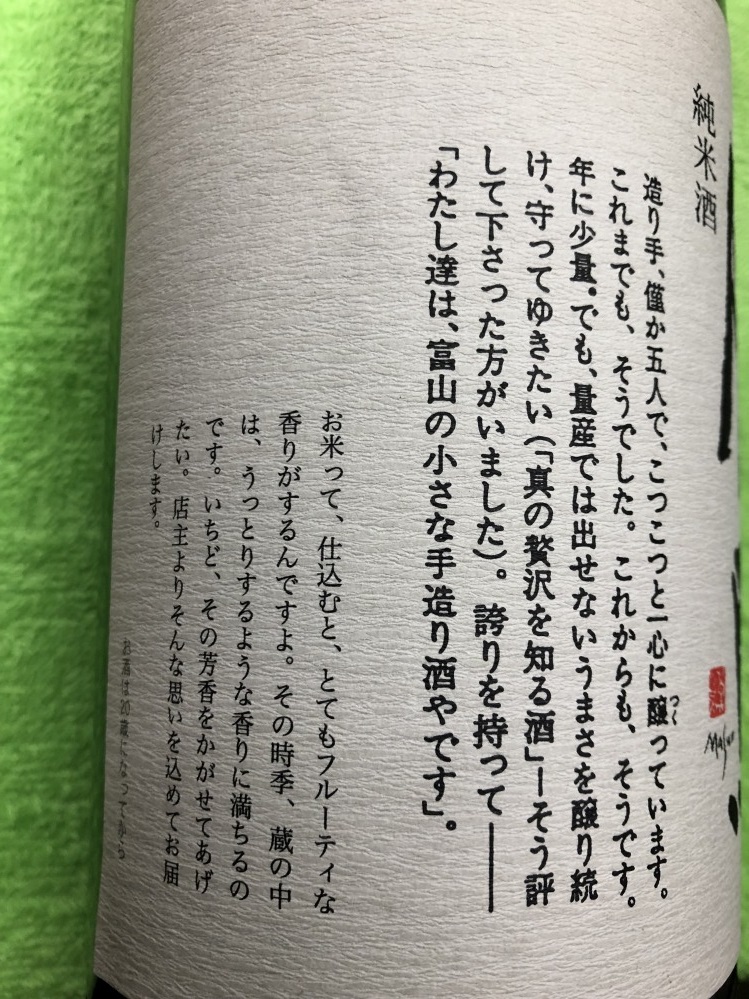 純米酒
造り手、僅か五人で、こつこつと一心に醸っています。
つく
これまでも、そうでした。これからも、そうです。
年に少量。でも、量産では出せないうまさを醸り続
け、守ってゆきたい（「真の贅沢を知る酒」—そう評
して下さった方がいました）。誇りを持って――
「わたし達は、富山の小さな手造り酒やです」。
お米って、仕込むと、とてもフルーティな
香りがするんですよ。その時季、蔵の中
は、うっとりするような香りに満ちるの
です。いちど、その芳香をかがせてあげ
たい。店主よりそんな思いを込めてお届
けします。
お酒は20歳になってから